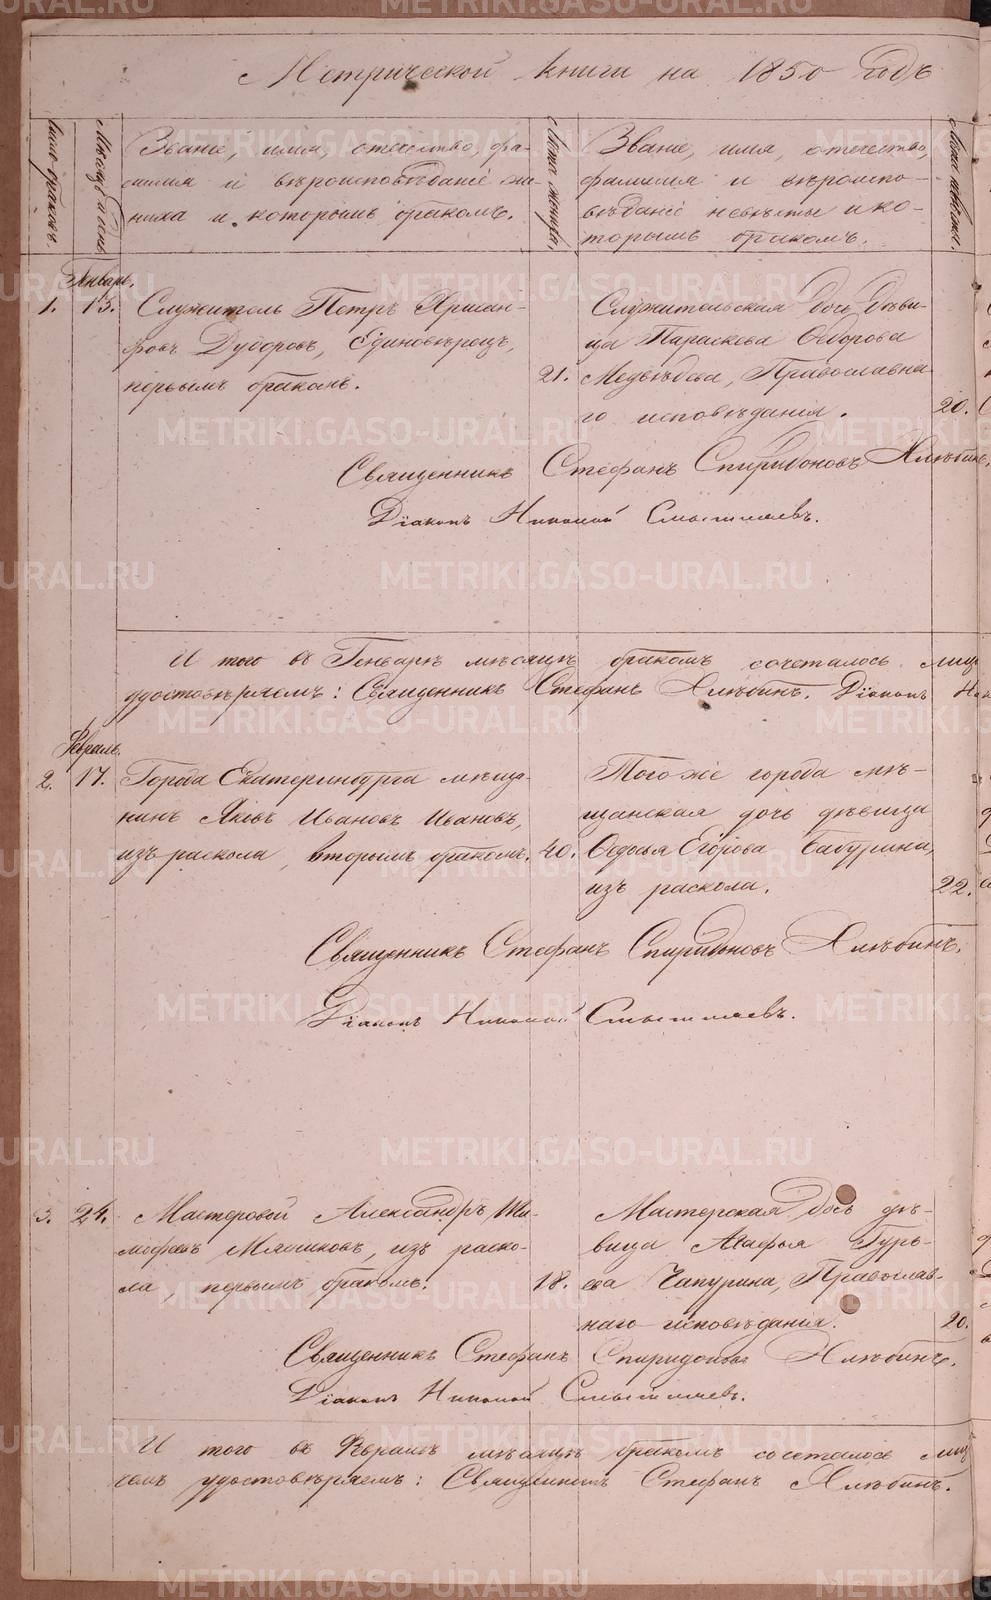 Метрической книги на 1850 годъ
Счетъ браковъ.
Мѣсяцъ и день
Званіе, имя, отечество, фа-
милия и вѣроисповѣданіе же-
ниха и которымъ бракомъ.
Лѣта жениха.
Званіе, имя, отечество,
фамилия и вѣроиспо-
вѣданіе невѣсты и ко-
торымъ бракомъ.
Лѣта невѣсты.
Январь.
1. 13. Служитель Петръ Хрисан-
фовъ Дубровъ, Единовѣрецъ,
первымъ бракомъ.
21.
Служительская дочь дѣви-
ца Параскева Федорова
Медвѣдева, Православна-
го исповѣданія.
20.
Священникъ Стефанъ Спиридоновъ Хлѣбинъ.
Діаконъ Николай Смышляевъ.
И того въ Генварѣ мѣсяцѣ бракомъ сочеталось лиц
удостовѣряемъ: Священникъ Стефанъ Хлѣбинъ. Діаконъ Ни
Февраль.
2. 17. Города Екатеринбурга мѣща-
нинъ Яковъ Ивановъ Ивановъ,
изъ раскола, вторымъ бракомъ.
40.
Того же города мѣ-
щанская дочь дѣвица
Федосья Егорова Бабурина,
изъ раскола.
22.
Священникъ Стефанъ Спиридоновъ Хлѣбинъ.
Діаконъ Николай Смышляевъ.
3. 24. Мастеровой Александръ Ти-
мофеевъ Мясниковъ, изъ раско-
ла, первымъ бракомъ.
18.
Мастерская дочь дѣ-
вица Агафья Гурь-
ева Чапурина, Православ-
наго исповѣданія.
20.
Священникъ Стефанъ Спиридоновъ Хлѣбинъ.
Діаконъ Николай Смышляевъ.
И того въ Февралѣ мѣсяцѣ бракомъ сочеталось лиц
чемъ удостовѣряемъ: Священникъ Стефанъ Хлѣбинъ.
METRIKI.GASO-URAL.RU